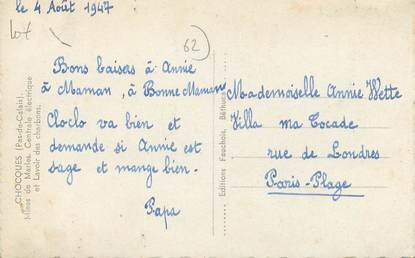 le 4 Août 1947
Lot
62
Bons baisers à Annie
à Maman, à Bonne Maman
Cloclo va bien et
demande si Annie est
sage et mange bien.
Papa
Mademoiselle Annie Wette
Villa ma Tocade
rue de Londres
Paris-Plage
CHOCQUES (Pas-de-Calais).
Mines de Marles. Centrale électrique
et Lavoir des charbons.
Editions Fauchois, Béthune